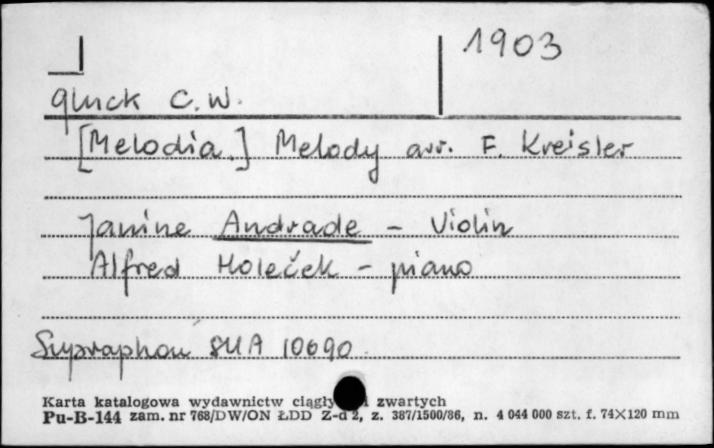 1903
Gluck C.W.
[Melodia.] Melody arr. F. Kreisler
Janine Andrade - Violin
Alfred Holeček - piano
Supraphon SUA 10690
Karta katalogowa wydawnictw zwartych
Pu-B-144 zam. nr 768/DW/ON ŁDD Z-d 2, z. 387/1500/86, n. 4 044 000 szt. f. 74×120 mm